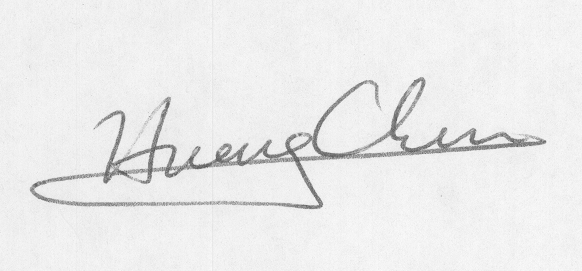 Huang Chen